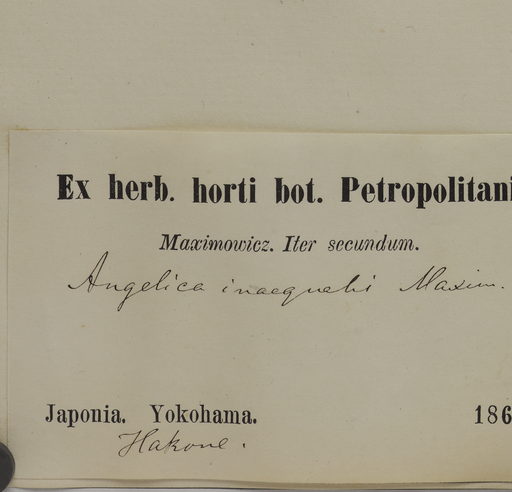 Ex herb. horti bot. Petropolitani
Maximowicz. Iter secundum.
Angelica inaequalis Maxim.
Japonia. Yokohama. 186
Hakone.